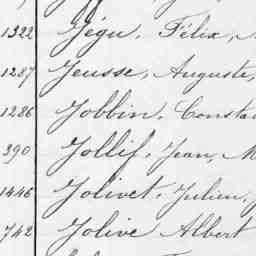 1322 Jégu, Félix,
1287 Jeusse, Auguste,
1286 Jobbin, Constan
390 Jollif, Jean, M
1446 Jolivet, Julien, J
742 Jolive Albert